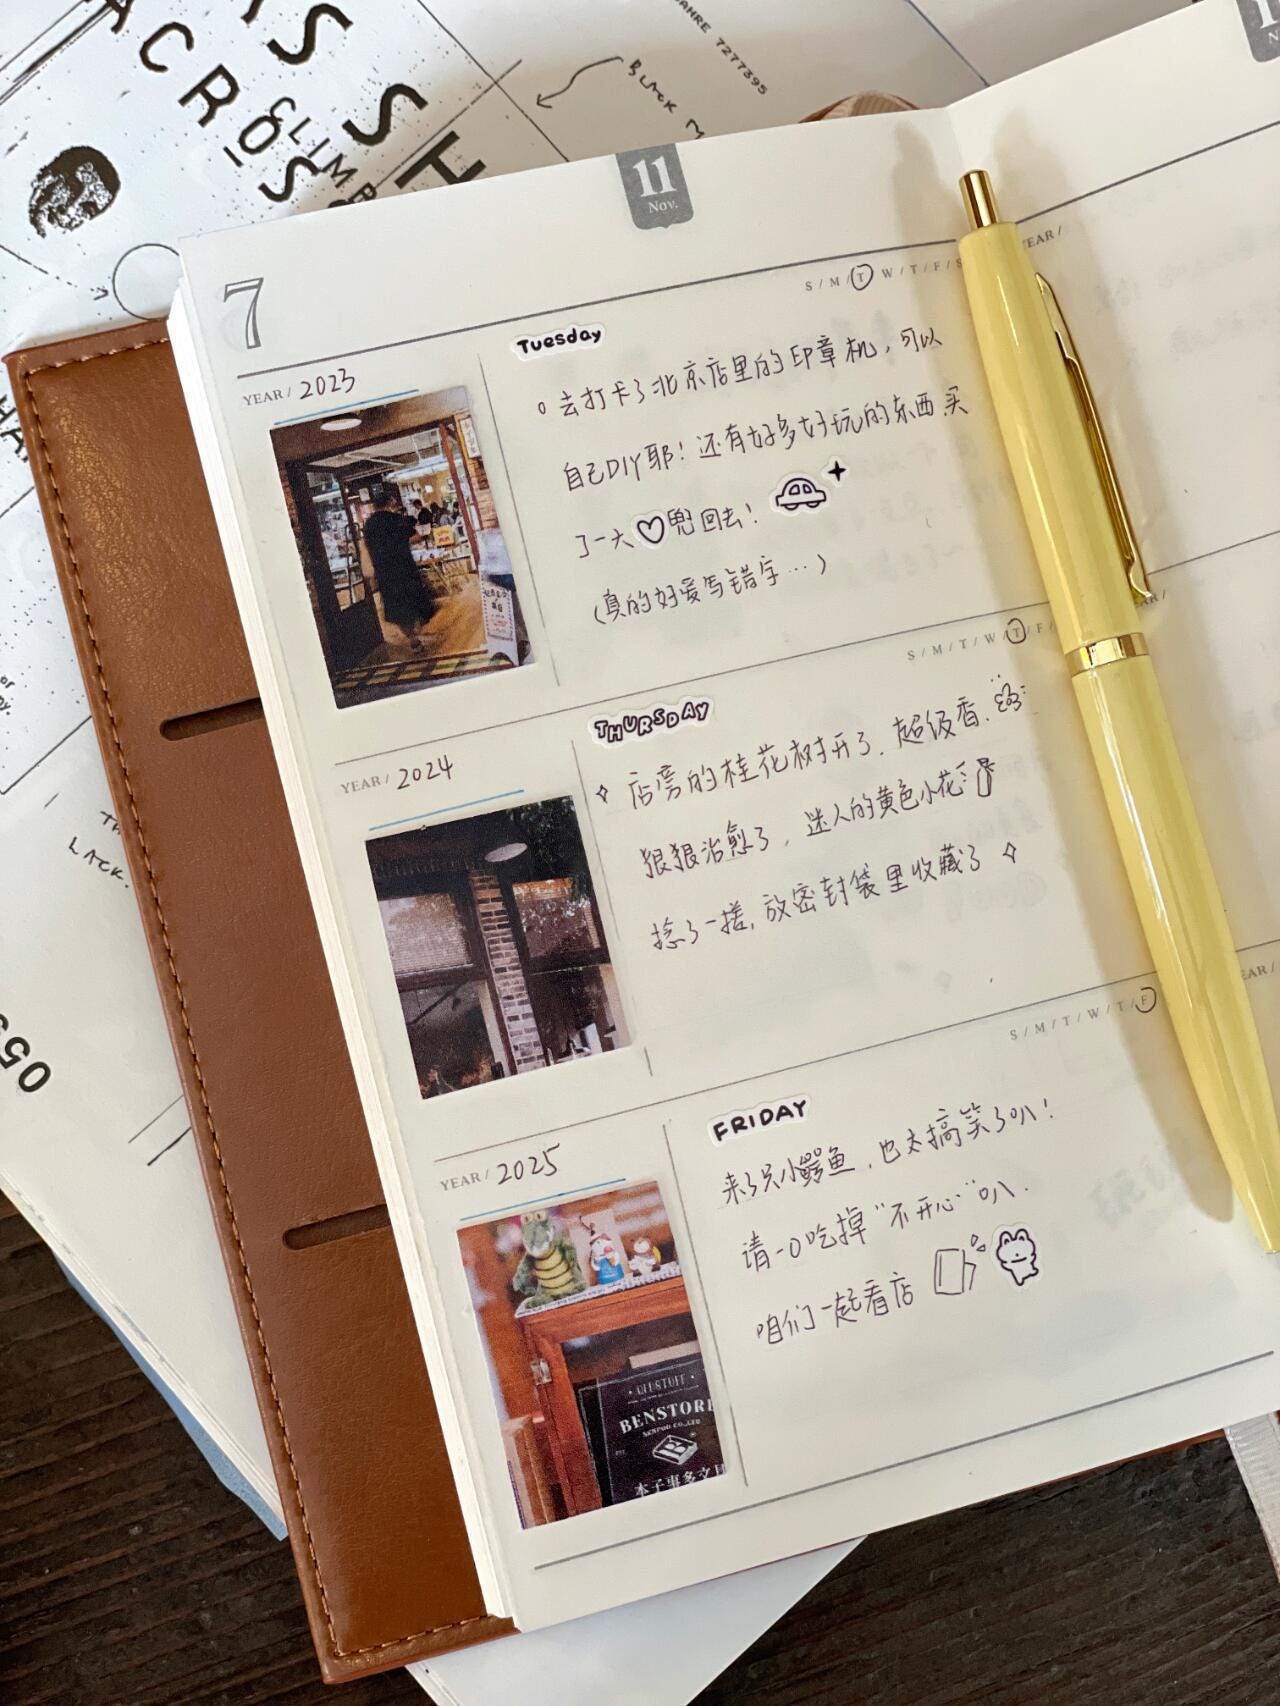 ACROSS
CLIMB
7277395
BLACK
11
Nov.
7
S / M / T / W / T / F / S
YEAR / 2023
Tuesday
去打卡了北京店里的印章机，可以
自己DIY耶！还有好多好玩的东西买
了一大♡兜回去！
（真的好爱写错字…）
S / M / T / W / T / F /
YEAR / 2024
THURSDAY
店旁的桂花树开了、超级香、
狠狠治愈了，迷人的黄色小花
捻了一搓，放密封袋里收藏了
S / M / T / W / T / F
YEAR / 2025
FRIDAY
来了只小鳄鱼，也太搞笑了叭！
请一口吃掉“不开心”叭、
咱们一起看店
OLDSTUFF
BENSTORE
本子事多文具
YEAR /
LACK.
053